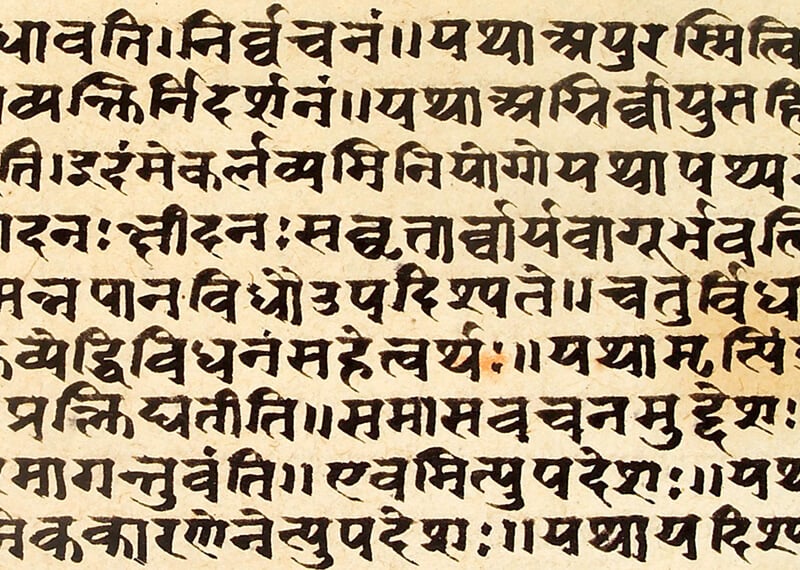 धावति। निर्व्वचनं॥ यथा अपुरस्मित्वि
व्यक्तिर्निदर्शनं॥ यथा अग्निर्व्वायुसहि
ति। इदंमेकर्त्तव्यमिनियोगो यथा पथ्य
दनः क्षीदनः सघृता र्व्वार्यवागूर्भवति
मन्नपानविधौउपदिश्यते॥ चतुर्विध
व्येद्विविधनंसहेत्वर्थः॥ यथा मृत्पिं
प्रक्लिद्यतीति॥ समासवचनमुद्देशः
मागन्तुवंति॥ एवमित्युपदेशः॥ यथ
ककारणेनेत्युपदेशः॥ यथायदिश्य